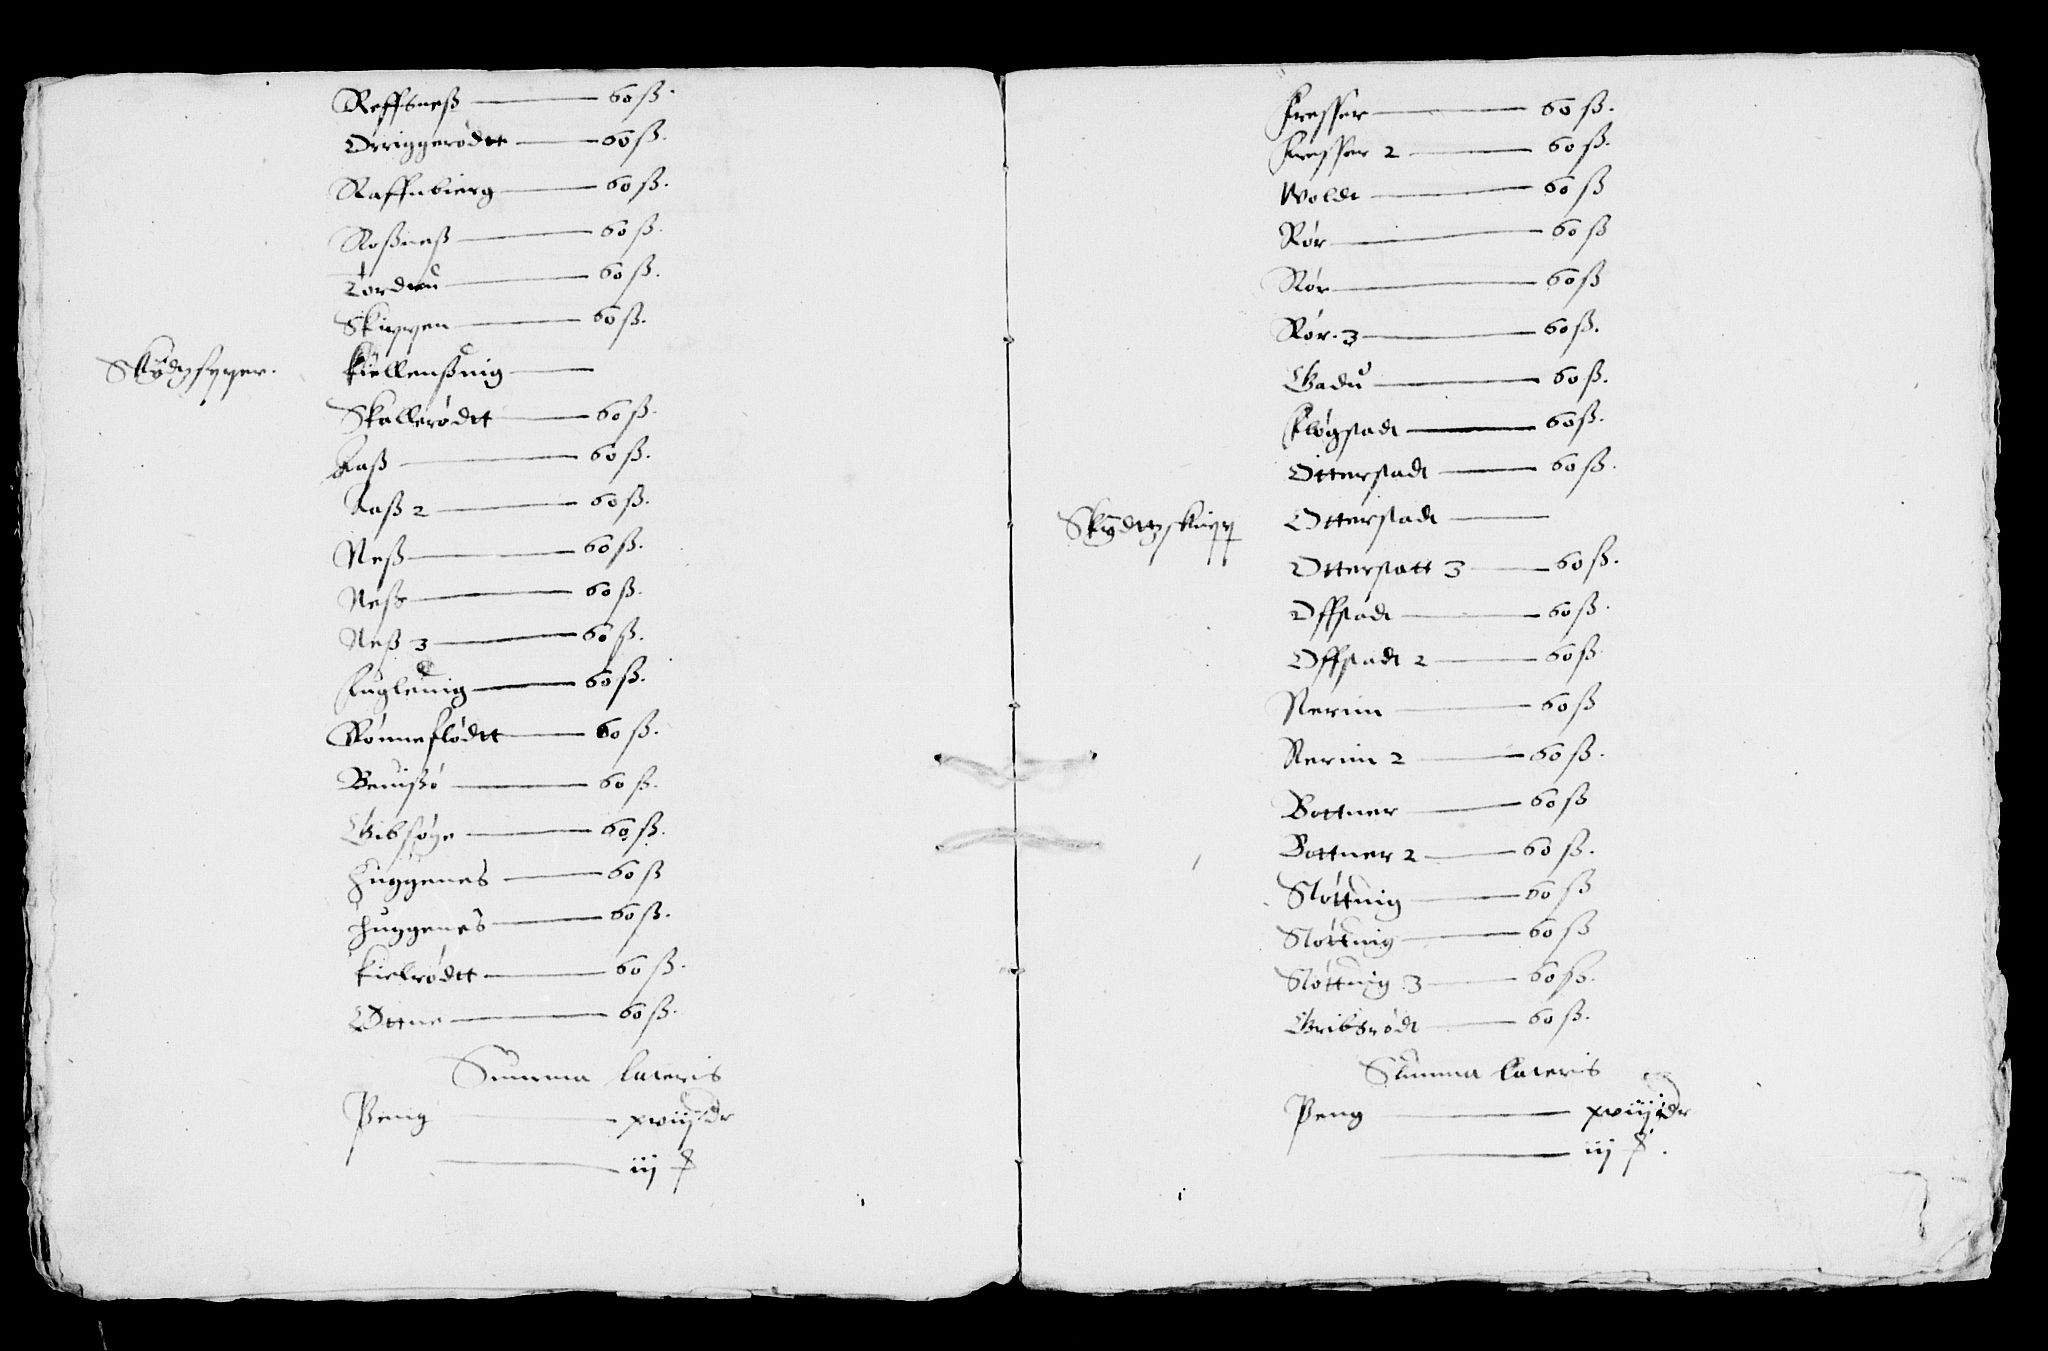 Reffsneß — 60 ß.
Orriggerødtt — 60 ß.
Raffnbierg — 60 ß.
Roßneß — 60 ß.
Torduu — 60 ß.
Skippen — 60 ß.
Skÿdtzferer. Kiellenßuig —
Skallerødtt — 60 ß.
Aaß — 60 ß.
Aaß 2 — 60 ß.
Neß — 60 ß.
Neß — 60 ß.
Neß 3 — 60 ß.
Fugleuig — 60 ß.
Rønneflødtt — 60 ß.
Beuißø — 60 ß.
Gibsøye — 60 ß.
Huggenes — 60 ß
Huggenes — 60 ß.
Kielrødtt — 60 ß.
Øttne — 60 ß.
Summa lateris
Peng — xviij dr
— iij ß
Kresser — 60 ß.
Kresser 2 — 60 ß.
Woldt — 60 ß
Rør — 60 ß
Rør — 60 ß
Rør. 3 — 60 ß.
Gadu — 60 ß.
Kløgstadt — 60 ß.
Otterstadt — 60 ß.
Skÿdtzskipp Otterstadt —
Otterstatt 3 — 60 ß.
Offstadt — 60 ß.
Offstadt 2 — 60 ß
Rerim — 60 ß
Rerim 2 — 60 ß.
Bottner — 60 ß
Bottner 2 — 60 ß.
Sløttuig — 60 ß
Sløttuig — 60 ß
Sløttuig 3 — 60 ß.
Gribsrødt — 60 ß.
Summa lateris
Peng — xviij dr
— iij ß.